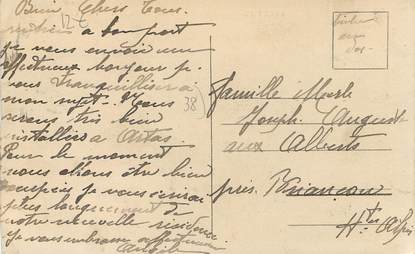 Bien Chers Tous.
à bon port
je vous envoie un
affectueux bonjour pr
vous tranquilliser à
mon sujet. Nous
serons très bien
installés à
Pour le moment
nous allons être bien
je vous écrirai
plus longuement de
notre nouvelle résidence
Je vous embrasse affectueusement
12 €
38
timbre
au
dos.
Famille Merle
Joseph Auguste
aux Alberts
près Briançon
Htes Alpes